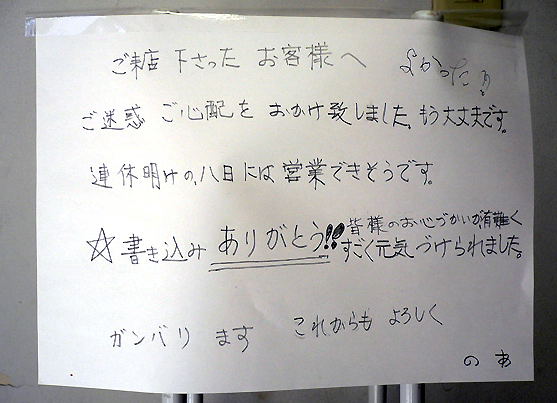 ご来店下さったお客様へ
よかったね
ご迷惑ご心配をおかけ致しました、もう大丈夫です。
連休明けの、八日には営業できそうです。
☆書き込みありがとう!!皆様のお心づかいが有難く
すごく元気づけられました。
ガンバリます これからもよろしく
のあ